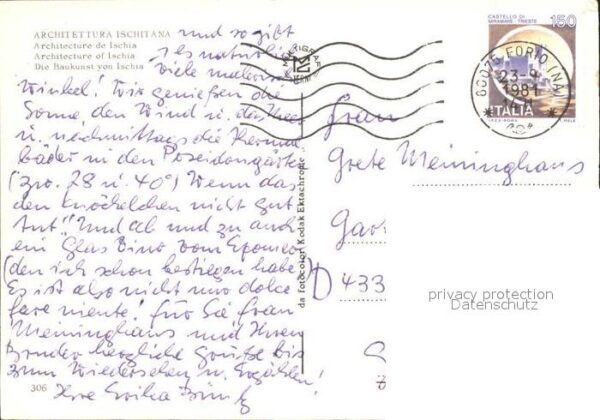 ARCHITETTURA ISCHITANA
Architecture de Ischia
Architecture of Ischia
Die Baukunst von Ischia
und so gibt
es natürlich
viele malerische
Winkel! Wir genießen die
Sonne, den Wind u. das Meer
u. nachmittags die Thermal
bäder in den Poseidongärten
(zw. 28 u. 40°) Wenn das
den Knöchelchen nicht gut
tut! Und ab und zu auch
ein Glas Vino vom Epomeo
(den ich schon bestiegen habe)
Es ist also nicht nur dolce
fare niente! Für Sie Frau
Meininghaus und Ihren
Bruder herzliche Grüße bis
zum Wiedersehen u. Erzählen!
Ihre Erika
306
da fotocolor Kodak Ektachrome
CASTELLO DI
MIRAMARE TRIESTE
150
ITALIA
80075 FORIO (NA)
23-9
1981
Frau
Grete Meininghaus
Gar
D 433
privacy protection
Datenschutz